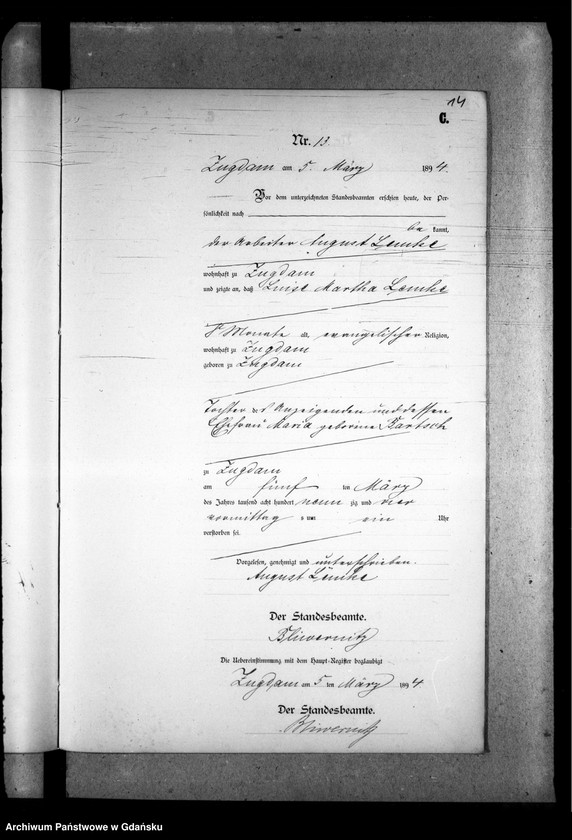 14
C.
Nr. 13.
Zugdam am 5. März 1894.
Vor dem unterzeichneten Standesbeamten erschien heute, der Per-
sönlichkeit nach
be kannt,
der Arbeiter August Lemke
wohnhaft zu Zugdam
und zeigte an, daß Luise Martha Lemke
Monate alt, evangelischer Religion,
wohnhaft zu Zugdam
geboren zu Zugdam
Tochter des Anzeigenden und dessen
Ehefrau Maria geborene Bartsch
zu Zugdam
am fünf ten März
des Jahres tausend acht hundert neun zig und vier
vormittag s um ein Uhr
verstorben sei.
Vorgelesen, genehmigt und unterschrieben.
August Lemke
Der Standesbeamte.
Bliwernitz
Die Uebereinstimmung mit dem Haupt-Register beglaubigt
Zugdam am 5 ten März 1894.
Der Standesbeamte.
Bliwernitz
Archiwum Państwowe w Gdańsku